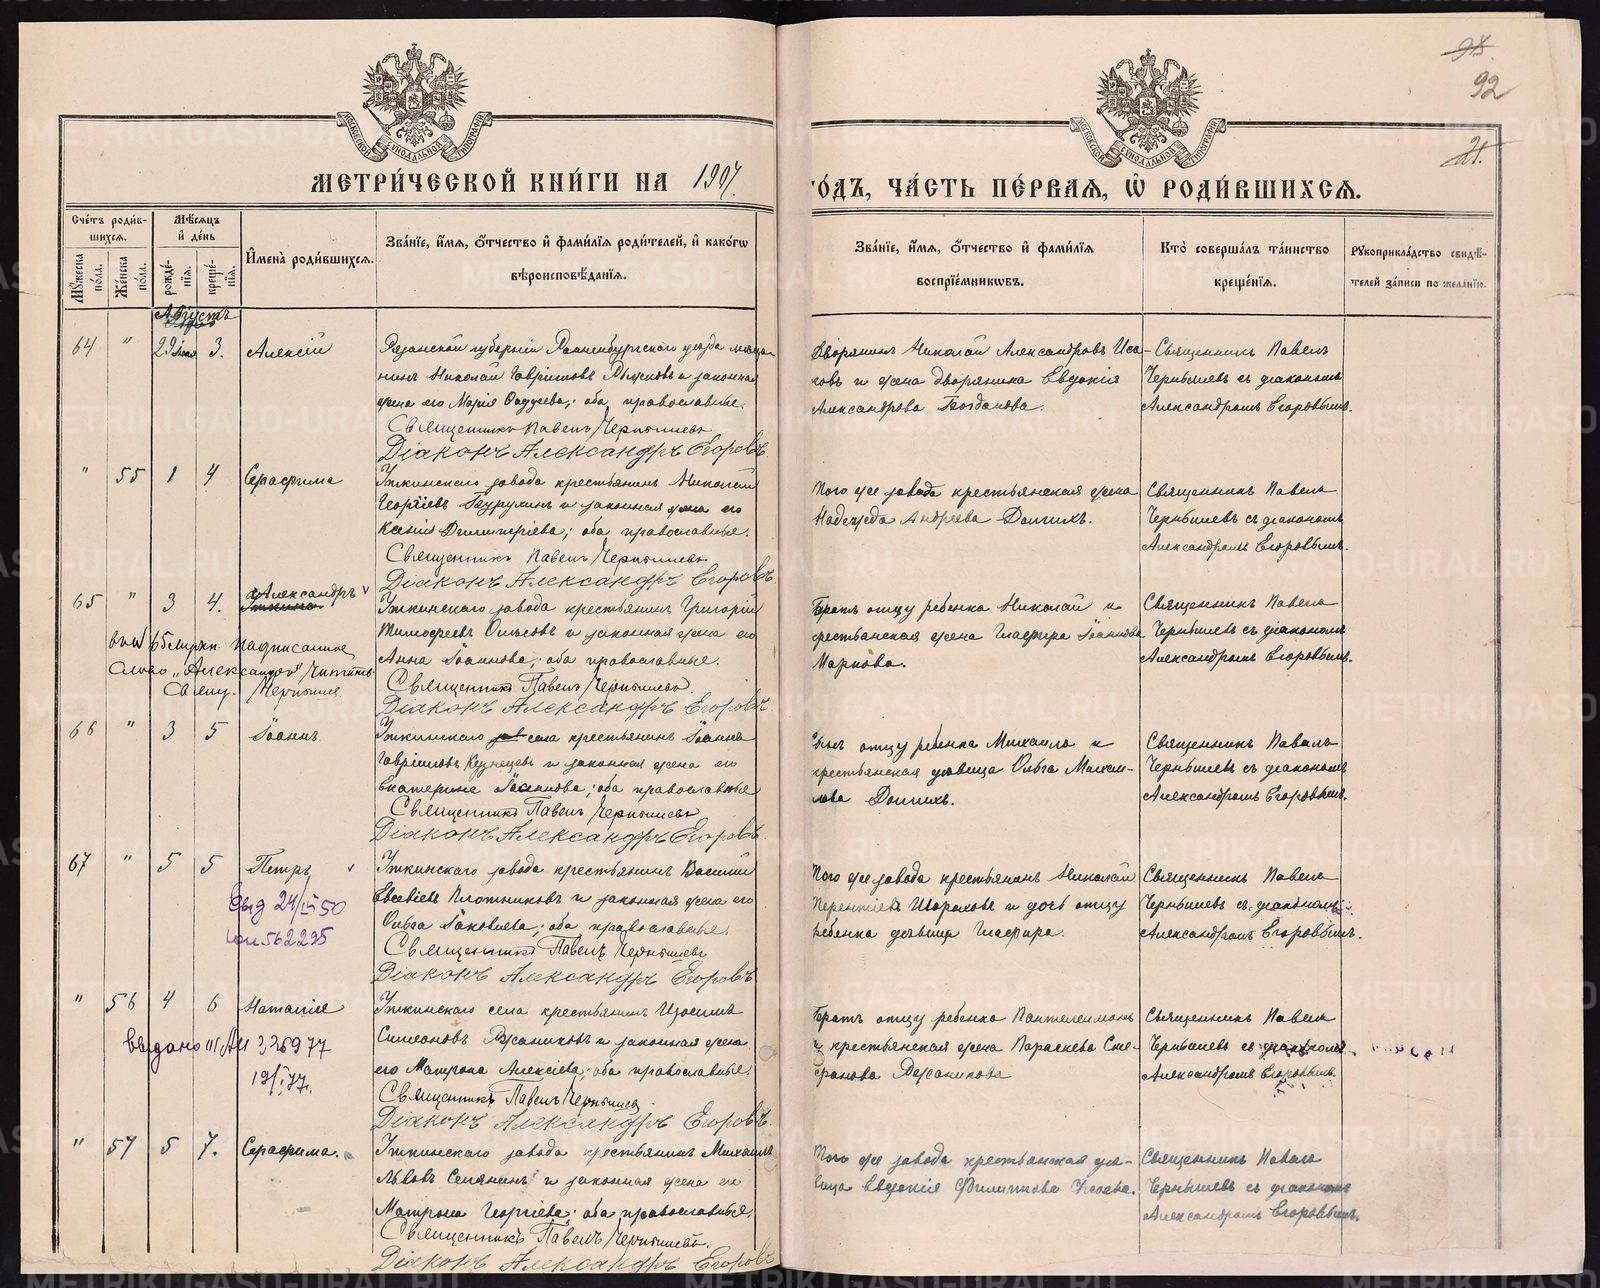 98
92
21.
МОСКОВСКОЙ СѴНОДАЛЬНОЙ ТИПОГРАФІИ
МОСКОВСКОЙ СѴНОДАЛЬНОЙ ТИПОГРАФІИ
МЕТРИ́ЧЕСКОЙ КНИ́ГИ НА 1907.
ГО́ДЪ, ЧА́СТЬ ПЕ́РВАЯ, Ѽ РОДИ́ВШИХСЯ.
Сче́тъ роди́в-
шихся.
Мꙋ́жеска по́ла.
Же́нска по́ла.
Мѣ́сяцъ
и҆ де́нь
рожде́нїя.
креще́нїя.
И҆мена̀ роди́вшихся.
Зва́нїе, и҆́мя, ѻ҆́тчество и҆ фами́лїя роди́телей, и҆ како́гѡ
вѣроисповѣ́данїя.
Зва́нїе, и҆́мя, ѻ҆́тчество и҆ фами́лїя
воспрїе́мникѡвъ.
Кто̀ соверша́лъ та́инство
креще́нїя.
Рꙋкоприкла́дство свидѣ́-
телей за́писи по жела́нїю.
Августъ
64 " 29 іюля 3. Алексій
Рязанской губерніи Раненбургскаго уѣзда мѣща-
нинъ Николай Гавріиловъ и законная
жена его Марія Фаддеева; оба православные.
Священникъ Павелъ Чернышевъ
Діаконъ Александръ Егоровъ.
Дворянинъ Николай Александровъ Иса-
ковъ и жена дворянина Евдокія
Александрова Богданова.
Священникъ Павелъ
Чернышевъ съ діакономъ
Александромъ Егоровымъ.
" 55 1 4 Серафима
Уткинскаго завода крестьянинъ Николай
Георгіевъ и законная жена его
Ксенія Димитріева; оба православные.
Священникъ Павелъ Чернышевъ
Діаконъ Александръ Егоровъ.
Того же завода крестьянская жена
Надежда Андреева Долгихъ.
Священникъ Павелъ
Чернышевъ съ діакономъ
Александромъ Егоровымъ.
65 " 3 4. Александръ
Уткинскаго завода крестьянинъ Григорій
Тимофеевъ и законная жена его
Анна Іоаннова; оба православные.
Священникъ Павелъ Чернышевъ.
Діаконъ Александръ Егоровъ.
въ № 65 муж. п. надписанное
слово „Александръ" читать.
Свящ. Чернышев
Братъ отцу ребенка Николай и
крестьянская жена Глафира Іоаннова
Маркова.
Священникъ Павелъ
Чернышевъ съ діакономъ
Александромъ Егоровымъ.
66 " 3 5 Іоаннъ.
Уткинскаго зав села крестьянинъ Іоаннъ
Гавріиловъ Кузнецовъ и законная жена его
Екатерина Іоаннова; оба православные
Священникъ Павелъ Чернышевъ
Діаконъ Александръ Егоровъ.
Сынъ отцу ребенка Михаилъ и
крестьянская дѣвица Ольга Михаи-
лова Долгихъ.
Священникъ Павелъ
Чернышевъ съ діакономъ
Александромъ Егоровымъ.
67 " 5 5 Петръ
Уткинскаго завода крестьянинъ Василій
Евсевіевъ Плотниковъ и законная жена его
Ольга Іаковлева; оба православные.
Священникъ Павелъ Чернышевъ
Діаконъ Александръ Егоровъ.
выд 24/III 50
562295
Того же завода крестьянинъ Николай
Терентіевъ и дочь отцу
ребенка дѣвица Глафира.
Священникъ Павелъ
Чернышевъ съ діакономъ
Александромъ Егоровымъ.
" 56 4 6 Наталія
Уткинскаго села крестьянинъ Изосимъ
Симеоновъ Русаниковъ и законная жена
его Матрона Алексіева; оба православные.
Священникъ Павелъ Чернышев.
Діаконъ Александръ Егоровъ.
выдано III АИ 326977
19/I 77.
Братъ отцу ребенка Пантелеимонъ
и крестьянская жена Параскева Сте-
фанова Русаникова
Священникъ Павелъ
Чернышевъ съ діакономъ
Александромъ Егоровымъ.
" 57 5 7. Серафима.
Уткинскаго завода крестьянинъ Михаилъ
Львовъ и законная жена его
Матрона Георгіева; оба православные.
Священникъ Павелъ Чернышевъ.
Діаконъ Александръ Егоровъ
Того же завода крестьянская дѣ-
вица Евдокія Филиппова Сысоева.
Священникъ Павелъ
Чернышевъ съ діакономъ
Александромъ Егоровымъ.
METRIKI.GASO-URAL.RU